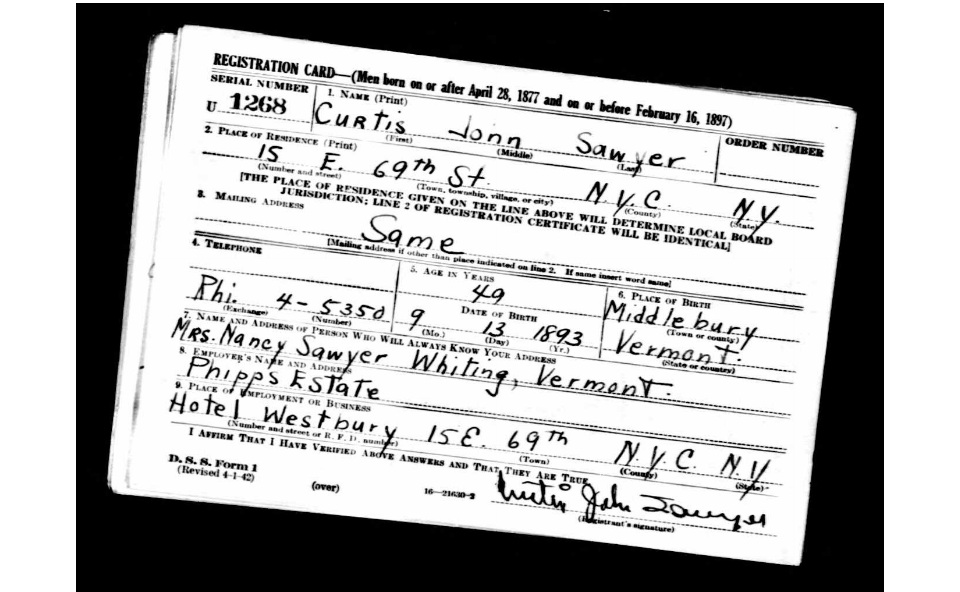 REGISTRATION CARD—(Men born on or after April 28, 1877 and on or before February 16, 1897)
SERIAL NUMBER 1. NAME (Print) ORDER NUMBER
U 1268 CURTIS John Sawyer
(First) (Middle) (Last)
2. PLACE OF RESIDENCE (Print)
15 E. 69th St N.Y.C. N.Y.
(Number and street) (Town, township, village, or city) (County) (State)
[THE PLACE OF RESIDENCE GIVEN ON THE LINE ABOVE WILL DETERMINE LOCAL BOARD
JURISDICTION; LINE 2 OF REGISTRATION CERTIFICATE WILL BE IDENTICAL]
3. MAILING ADDRESS
Same
[Mailing address if other than place indicated on line 2. If same insert word same]
4. TELEPHONE 5. AGE IN YEARS 6. PLACE OF BIRTH
49 Middlebury
DATE OF BIRTH (Town or county)
Rhi. 4-5350 9 13 1893 Vermont.
(Exchange) (Number) (Mo.) (Day) (Yr.) (State or country)
7. NAME AND ADDRESS OF PERSON WHO WILL ALWAYS KNOW YOUR ADDRESS
MRS. Nancy Sawyer Whiting, Vermont.
8. EMPLOYER'S NAME AND ADDRESS
Phipps Estate
9. PLACE OF EMPLOYMENT OR BUSINESS
Hotel Westbury 15 E. 69th N.Y.C. N.Y
(Number and street or R. F. D. number) (Town) (County) (State)
I AFFIRM THAT I HAVE VERIFIED ABOVE ANSWERS AND THAT THEY ARE TRUE.
D. S. S. Form 1
(Revised 4-1-42) (over) 16—21630-2 Curtis John Sawyer
(Registrant's signature)